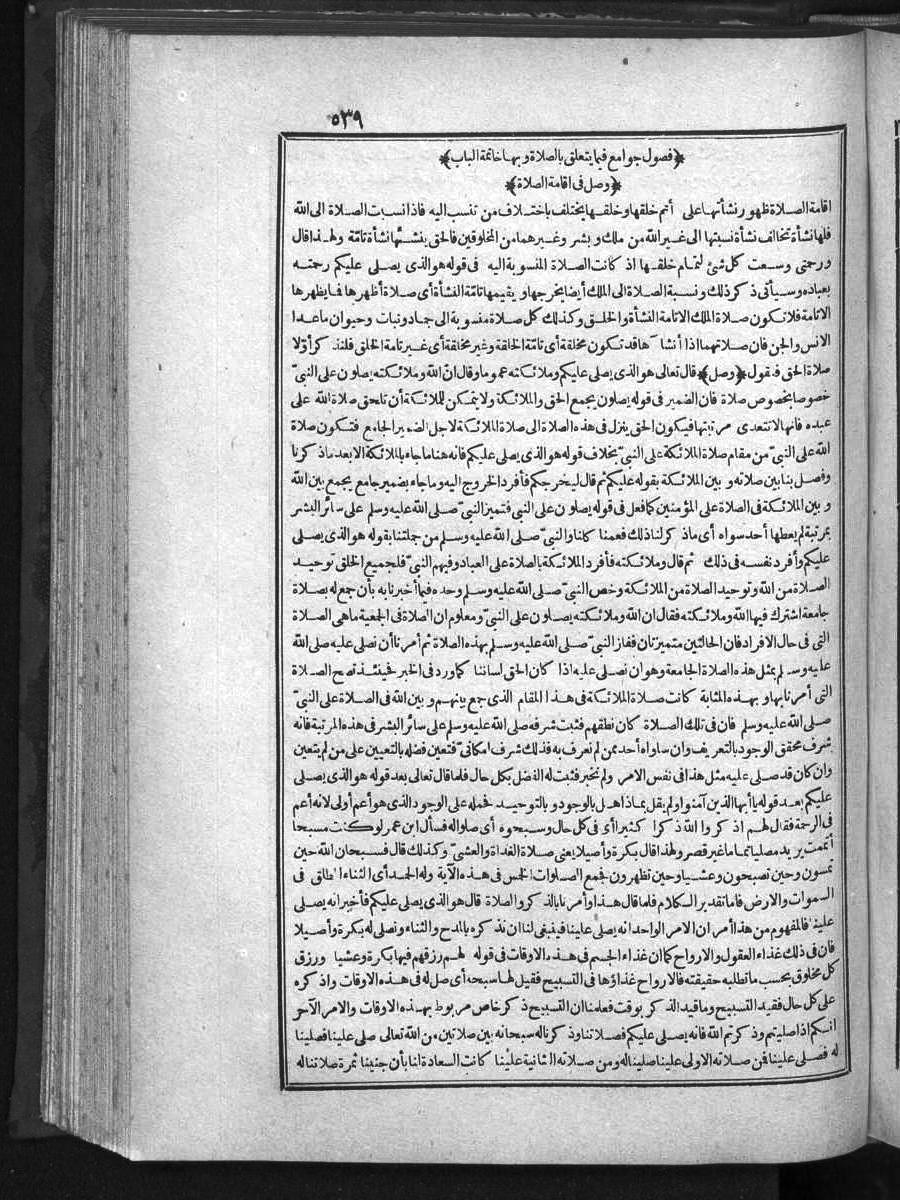 ٥٣٩
﴿فصول جوامع فيما يتعلق بالصلاة وبها خاتمة الباب﴾
﴿وصل فى اقامة الصلاة﴾
اقامة الصلاة ظهور نشأتها على أتم خلقها وخلقها يختلف باختلاف من تنسب اليه فاذا نسبت الصلاة الى الله
فلها نشأة تخالف نشأة نسبتها الى غير الله من ملك وبشر وغيرهما من المخلوقين فالحق ينشئها نشأة تامّة ولهذا قال
ورحمتى وسعت كل شئ لتمام خلقها اذ كانت الصلاة المنسوبة اليه فى قوله هو الذى يصلى عليكم رحمته
بعباده وسيأتى ذكر ذلك ونسبة الصلاة الى الملك أيضا يخرجها ويقيمها تامّة النشأة أى صلاة أظهرها فما يظهرها
الا تامة فلا تكون صلاة الملك الا تامة النشأة والخلق وكذلك كل صلاة منسوبة الى جماد ونبات وحيوان ما عدا
الانس والجن فان صلاتهما اذا أنشآها قد تكون مخلقة أى تامّة الخلقة وغير مخلقة أى غير تامة الخلق فلنذكر أوّلا
صلاة الحق فنقول ﴿وصل﴾ قال تعالى هو الذى يصلى عليكم وملائكته عموما وقال انّ الله وملائكته يصلون على النبىّ
خصوصا بخصوص صلاة فان الضمير فى قوله يصلون يجمع الحق والملائكة ولا يتمكن للملائكة أن تلحق صلاة الله على
عبده فانها لا تتعدى مرتبتها فيكون الحق ينزل فى هذه الصلاة الى صلاة الملائكة لاجل الضمير الجامع فتكون صلاة
الله على النبىّ من مقام صلاة الملائكة على النبىّ بخلاف قوله هو الذى يصلى عليكم فانه هنا ما جاء بالملائكة الا بعد ما ذكرنا
وفصل بنا بين صلاته وبين الملائكة بقوله عليكم ثم قال ليخرجكم فأفرد الخروج اليه وما جاء بضمير جامع يجمع بين الله
وبين الملائكة فى الصلاة على المؤمنين كما فعل فى قوله يصلون على النبى فتميز النبىّ صلى الله عليه وسلم على سائر البشر
بمرتبة لم يعطها أحد سواه أى ما ذكر لنا ذلك فعمنا كلنا والنبىّ صلى الله عليه وسلم من جملتنا بقوله هو الذى يصلى
عليكم وأفرد نفسه فى ذلك ثم قال وملائكته فأفرد الملائكة بالصلاة على العباد وفيهم النبىّ فلجميع الخلق توحيد
الصلاة من الله وتوحيد الصلاة من الملائكة وخص النبىّ صلى الله عليه وسلم وحده فيما أخبرنا به بأن جمع له بصلاة
جامعة اشترك فيها الله وملائكته فقال ان الله وملائكته يصلون على النبىّ ومعلوم ان الصلاة فى الجمعية ما هى الصلاة
التى فى حال الافراد فان الحالتين متميزتان ففاز النبىّ صلى الله عليه وسلم بهذه الصلاة ثم أمرنا أن نصلى عليه صلى الله
عليه وسلم بمثل هذه الصلاة الجامعة وهو ان نصلى عليه اذا كان الحق لساننا كما ورد فى الخبر فحينئذ تصح الصلاة
التى أمر نابها وبهذه المثابة كانت صلاة الملائكة فى هذا المقام الذى جمع بينهم وبين الله فى الصلاة على النبىّ
صلى الله عليه وسلم فان فى تلك الصلاة كان نطقهم فثبت شرفه صلى الله عليه وسلم على سائر البشر فى هذه المرتبة فانه
شرف محقق الوجود بالتعريف وان ساواه أحد ممن لم نعرف به فذلك شرف امكانىّ فتعين فضله بالتعيين على من لم يتعين
وان كان قد صلى عليه مثل هذا فى نفس الامر ولم نخبر فثبت له الفضل بكل حال فلما قال تعالى بعد قوله هو الذى يصلى
عليكم بعد قوله يا أيها الذين آمنوا ولم يقل بماذا هل بالوجود أو بالتوحيد فحمله على الوجود الذى هو أعم أولى لانه أعم
فى الرحمة فقال لهم اذكروا الله ذكرا كثيرا أى فى كل حال وسبحوه أى صلوا له فسأل ابن عمر لو كنت مسبحا
أتممت يريد مصليا تماما غير قصر ولهذا قال بكرة وأصيلا يعنى صلاة الغداة والعشىّ وكذلك قال فسبحان الله حين
تمسون وحين تصبحون وعشيا وحين تظهرون فجمع الصلوات الخمس فى هذه الآية وله الحمد أى الثناء المطلق فى
السموات والارض فاما تقدير الكلام فلما قال هذا وأمرنا بالذكر والصلاة قال هو الذى يصلى عليكم فأخبر انه يصلى
علينا فالمفهوم من هذا أمران الامر الواحد انه يصلى علينا فينبغى لنا ان نذكره بالمدح والثناء ونصلى له بكرة وأصيلا
فان فى ذلك غذاء العقول والارواح كما ان غذاء الجسم فى هذه الاوقات فى قوله لهم رزقهم فيها بكرة وعشيا ورزق
كل مخلوق بحسب ما تطلبه حقيقته فالارواح غذاؤها فى التسبيح فقيل لها سبحه أى صل له فى هذه الاوقات واذكره
على كل حال فقيد التسبيح وما قيد الذكر بوقت فعلمنا ان التسبيح ذكر خاص مربوط بهذه الاوقات والامر الآخر
انكم اذا صليتم وذكرتم الله فانه يصلى عليكم فصلاتنا وذكرنا له سبحانه بين صلاتين من الله تعالى صلى علينا فصلينا
له فصلى علينا فمن صلاته الاولى علينا صلينا له ومن صلاته الثانية علينا كانت السعادة لنا بأن جنينا ثمرة صلاتنا له